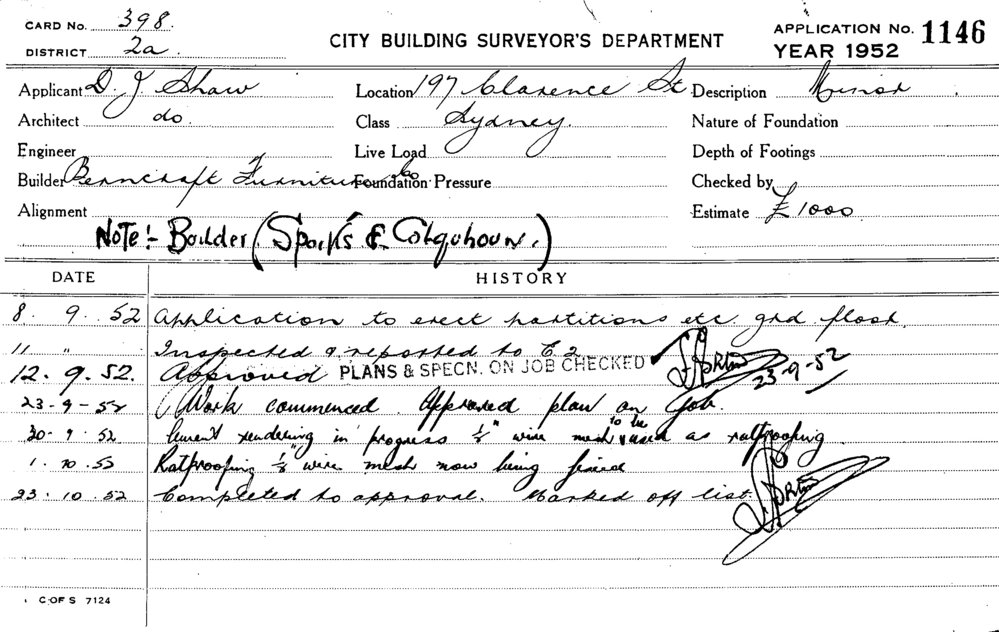 CARD No. 398. CITY BUILDING SURVEYOR'S DEPARTMENT APPLICATION No. 1146
DISTRICT 2a. YEAR 1952
Applicant D. J Shaw Location 197 Clarence St Description Minor.
Architect do. Class Sydney. Nature of Foundation
Engineer Live Load Depth of Footings
Builder Berncraft Furniture Co Foundation Pressure Checked by
Alignment Estimate £1000
Note:- Builder (Sparks & Colquhoun.)
DATE HISTORY
8. 9. 52 Application to erect partitions etc grd floor.
11 " Inspected & reported to C2
12. 9. 52. Approved PLANS & SPECN. ON JOB CHECKED 23-9-52
23-9-52 Work commenced. Approved plan on job.
30-9-52 Cement rendering in progress ½" wire mesh to be used as ratproofing.
1. 10. 52 Ratproofing ½" wire mesh now being fixed
23. 10. 52 Completed to approval. Marked off list.
C OF S 7124